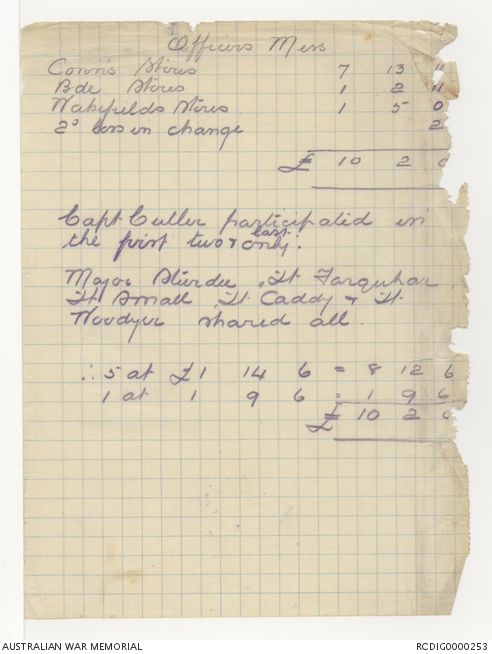 Officers Mess
Conn's Stores 7 13 11
Bde Stores 1 2 11
Wakefields Stores 1 5 0
2d loss in change 2
£ 10 2 0
Capt Culler participated in
the first two & last only.
Major Sturdee, Lt Farquhar,
Lt Small, Lt Caddy & Lt
Woodyer shared all.
∴ 5 at £1 14 6 = 8 12 6
1 at 1 9 6 = 1 9 6
£ 10 2 0
AUSTRALIAN WAR MEMORIAL
RCDIG0000253